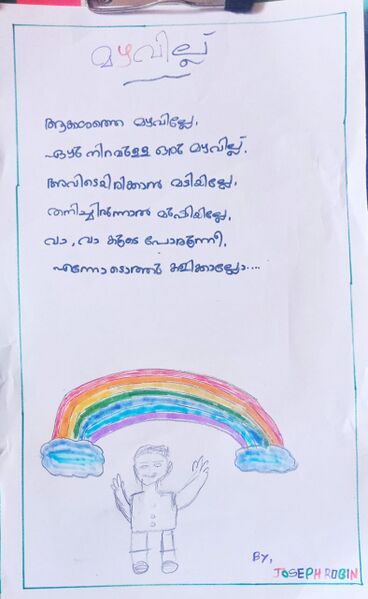 മഴവില്ല്
ആകാശത്തെ മഴവില്ലേ,
ഏഴു നിറമുള്ള ഒരു മഴവില്ല്.
അവിടെയിരിക്കാൻ മടിയില്ലേ,
തനിച്ചിരുന്നാൽ മുഷിയില്ലേ,
വാ, വാ കൂടെ പോരുന്നീ,
എന്നോടൊത്തു കളിക്കാല്ലോ....
BY,
JOSEPH ROBIN